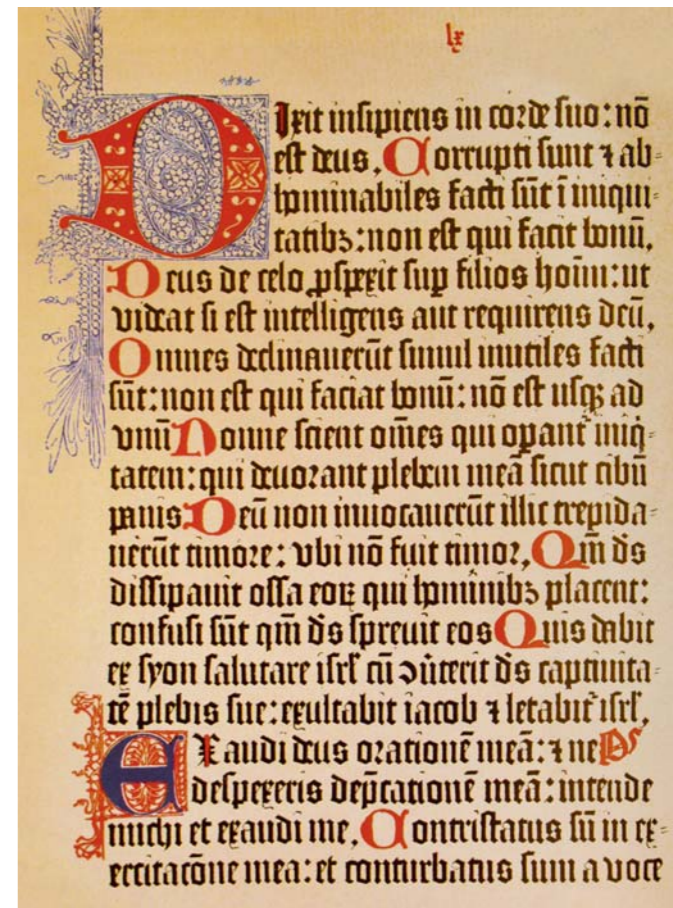 lx
DIxit insipiens in corde suo: nō
est deus. Corrupti sunt ⁊ ab-
hominabiles facti sūt ī iniqui-
tatibꝫ: non est qui facit bonū.
Deus de celo ꝓspexit sup filios hoīm: ut
videat si est intelligens aut requirens deū.
Omnes declinauerūt simul inutiles facti
sūt: non est qui faciat bonū: nō est usqꝫ ad
vnū Nonne scient om̄es qui opant᷑ iniq-
tatem: qui deuorant plebem meā sicut cibū
panis Deū non inuocauerūt illic trepida-
uerūt timore: vbi nō fuit timor. Qm̄ ds̄
dissipauit ossa eoꝝ qui hominibꝫ placent:
confusi sūt qm̄ ds̄ spreuit eos Quis dabit
ex syon salutare isrl̄ cū ꝯu̇terit ds̄ captiuita-
tē plebis sue: exultabit iacob ⁊ letabit᷑ isrl̄.
EXaudi deus orationē meā: ⁊ ne PS
despexeris dep̄cationē meā: intende
michi et exaudi me. Contristatus sū in ex-
ercitacōne mea: et conturbatus sum a voce